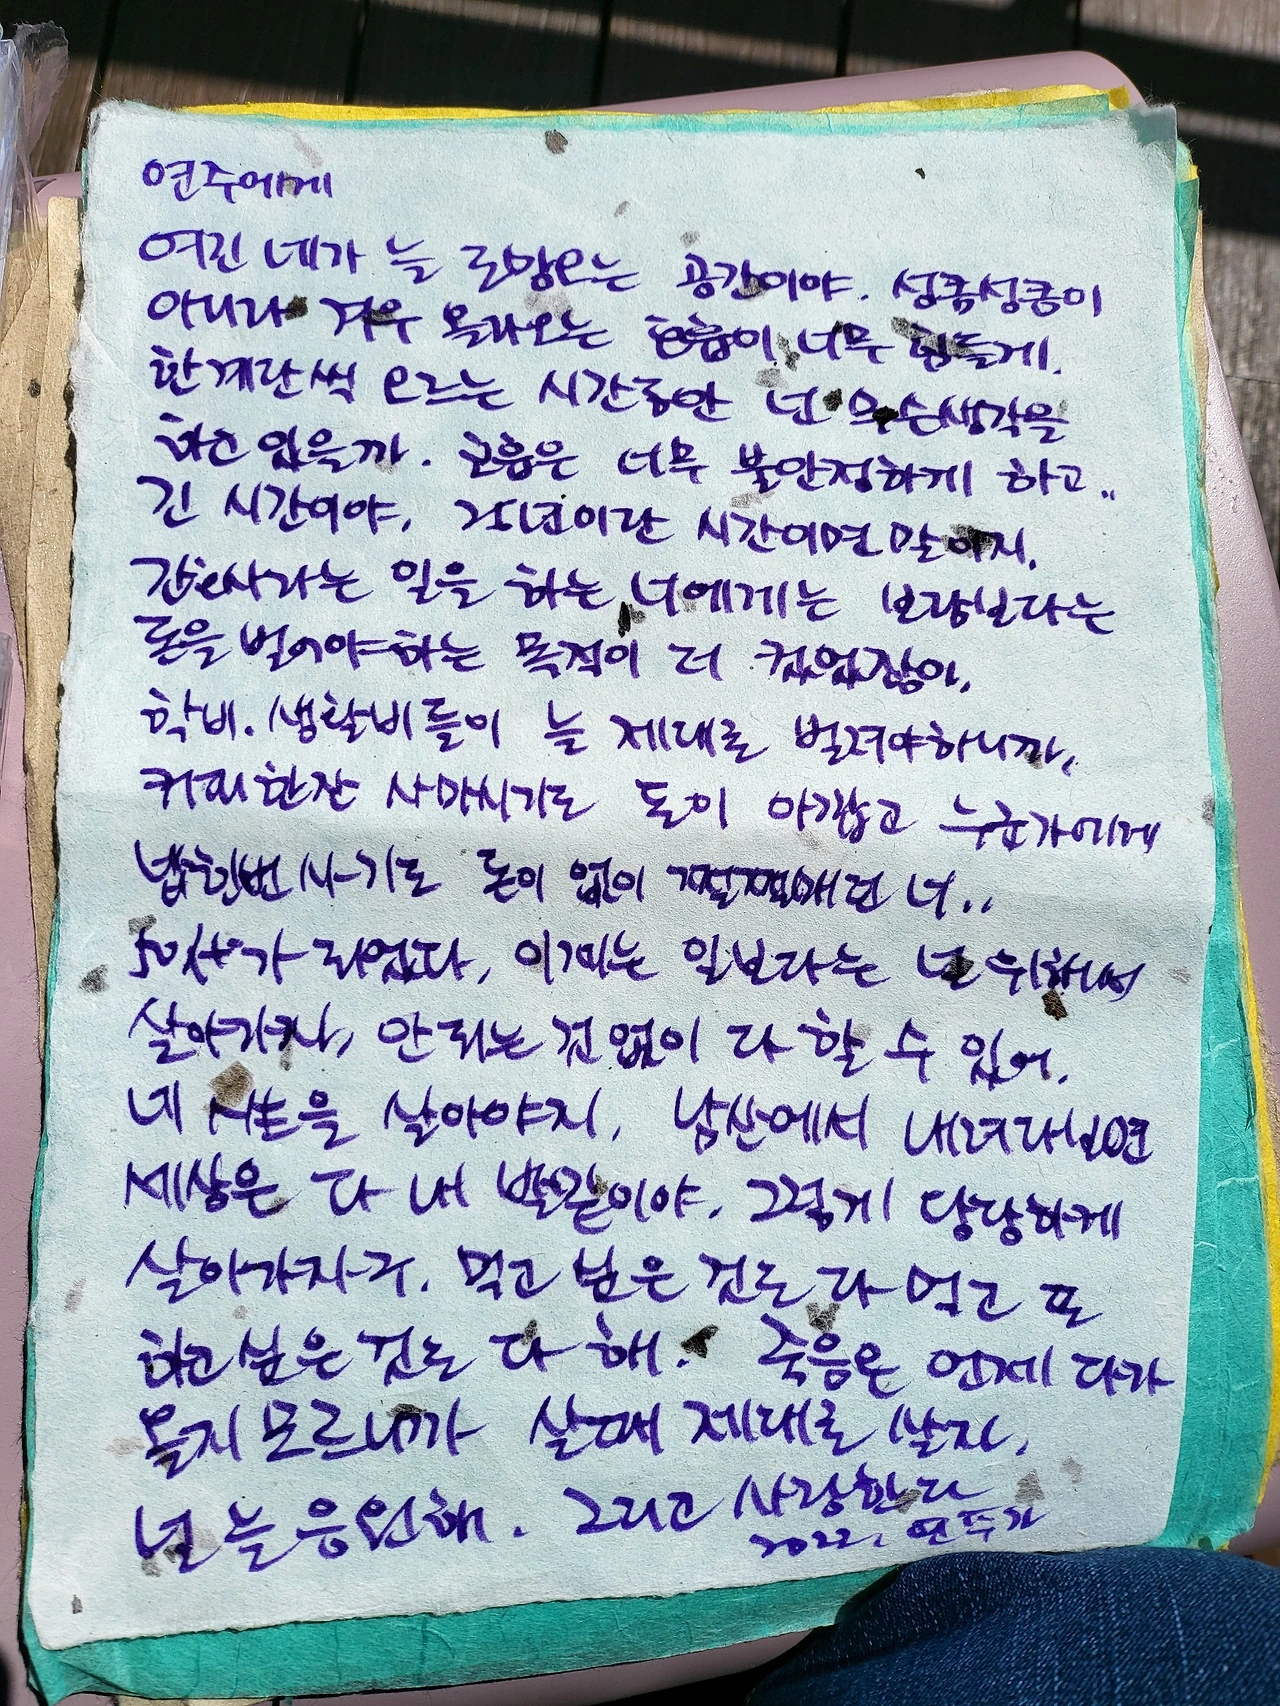 연주에게
여긴 네가 늘 로망으는 공간이야. 성큼성큼이
아니라 겨우 올라오는 호흡이 너무 힘들게.
한계단씩 오르는 시간동안 넌 무슨생각을
하고 있을까. 호흡은 너무 불안정하게 하고..
긴 시간이야. 25년이란 시간이면 말이지.
간호사라는 일을 하는 너에게는 보람보다는
돈을 벌어야하는 목적이 더 컸었잖아.
학비. 생활비들이 늘 제대로 벌려야하니까.
커피한잔 사마시기도 돈이 아깝고 누군가에게
밥한번 사기도 돈이 없어 쩔쩔매던 너..
50살가 되었다, 이제는 일보다는 널 위해서
살아가자, 안되는 건 없이 다 할 수 있어.
네 을 살아야지, 남산에서 내려다보면
세상은 다 내 발밑이야. 그렇게 당당하게
살아가자구. 먹고싶은 것도 다 먹고 또
하고싶은 것도 다 해. 죽음은 언제 다가
올지 모르니까 살때 제대로 살자,
널 늘 응원해. 그리고 사랑한다
2022. 연주가